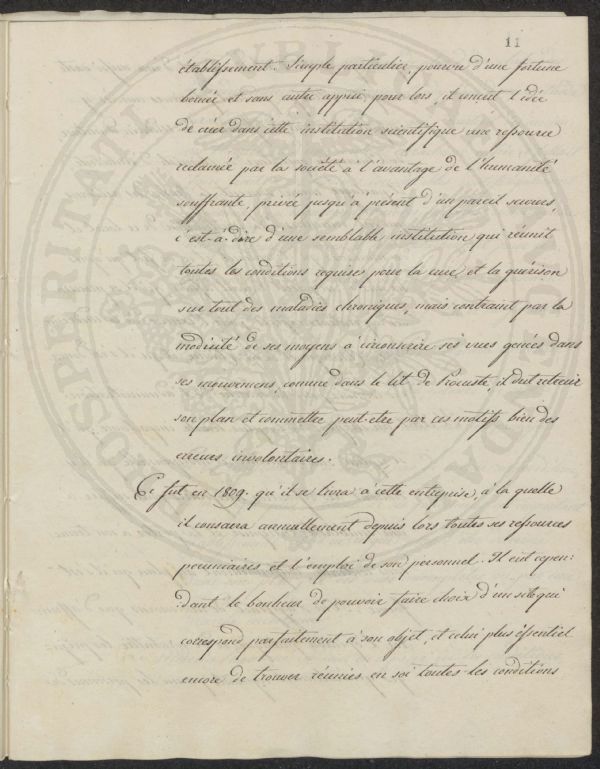 11
établissement. Simple particulier, pourvu d'une fortune
bornée et sans autre appui pour lors, il conçut l'idée
de créer dans cette institution scientifique une ressource
reclamée par la société à l'avantage de l'humanité
souffrante, privée jusqu'à présent d'un pareil secours,
c'est-à-dire d'une semblable institution qui réunit
toutes les conditions requises pour la cure et la guérison
sur tout des maladies chroniques, mais contraint par la
modicité de ses moyens à circonscrire ses vues genées dans
ses mouvemens, comme dans le lit de Procuste, il dut retrecir
son plan et commettre peut-etre par ces motifs bien des
erreurs involontaires.
Ce fut en 1809. qu'il se livra à cette entreprise, à la quelle
il consacra annuellement depuis lors toutes ses ressources
pecuniaires et l'emploi de son personnel. Il eut cepen:
dant le bonheur de pouvoir faire choix d'un site qui
correspond parfaitement à son objet, et celui plus essentiel
encore de trouver réunies en soi toutes les conditions